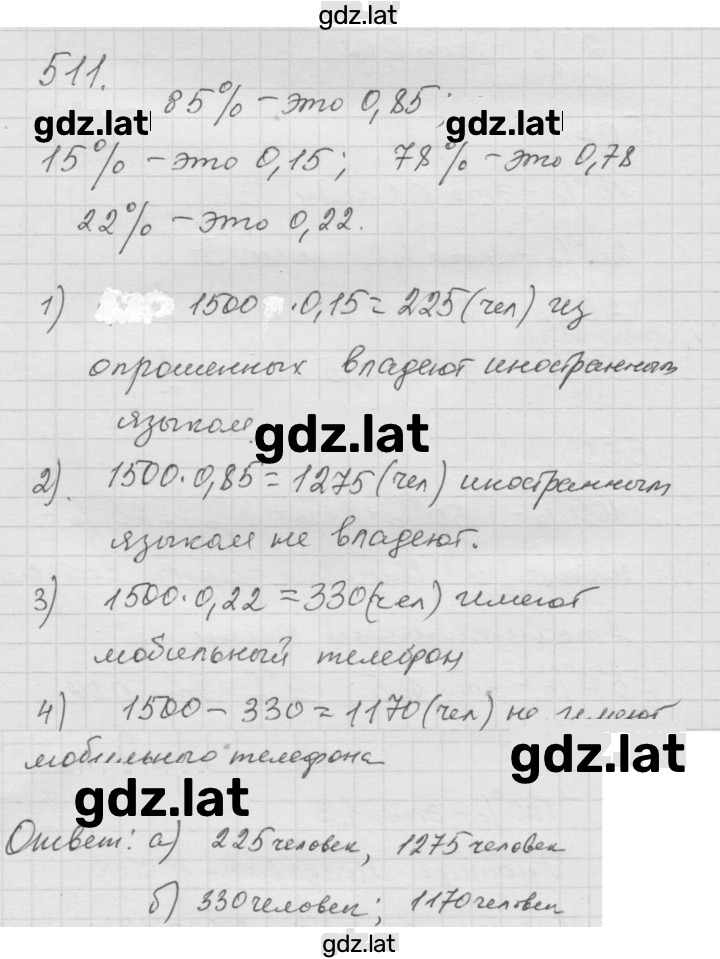 gdz.lat
511.
85% – это 0,85;
gdz.lat gdz.lat
15% – это 0,15; 78% – это 0,78
22% – это 0,22.
1) 1500 · 0,15 = 225 (чел) из
опрошенных владеют иностранным
языком.
gdz.lat
2). 1500 · 0,85 = 1275 (чел) иностранным
языком не владеют.
3) 1500 · 0,22 = 330 (чел) имеют
мобильный телефон
4) 1500 – 330 = 1170 (чел) не имеют
мобильного телефона
gdz.lat
gdz.lat
Ответ: а) 225 человек, 1275 человек
б) 330 человек; 1170 человек
gdz.lat